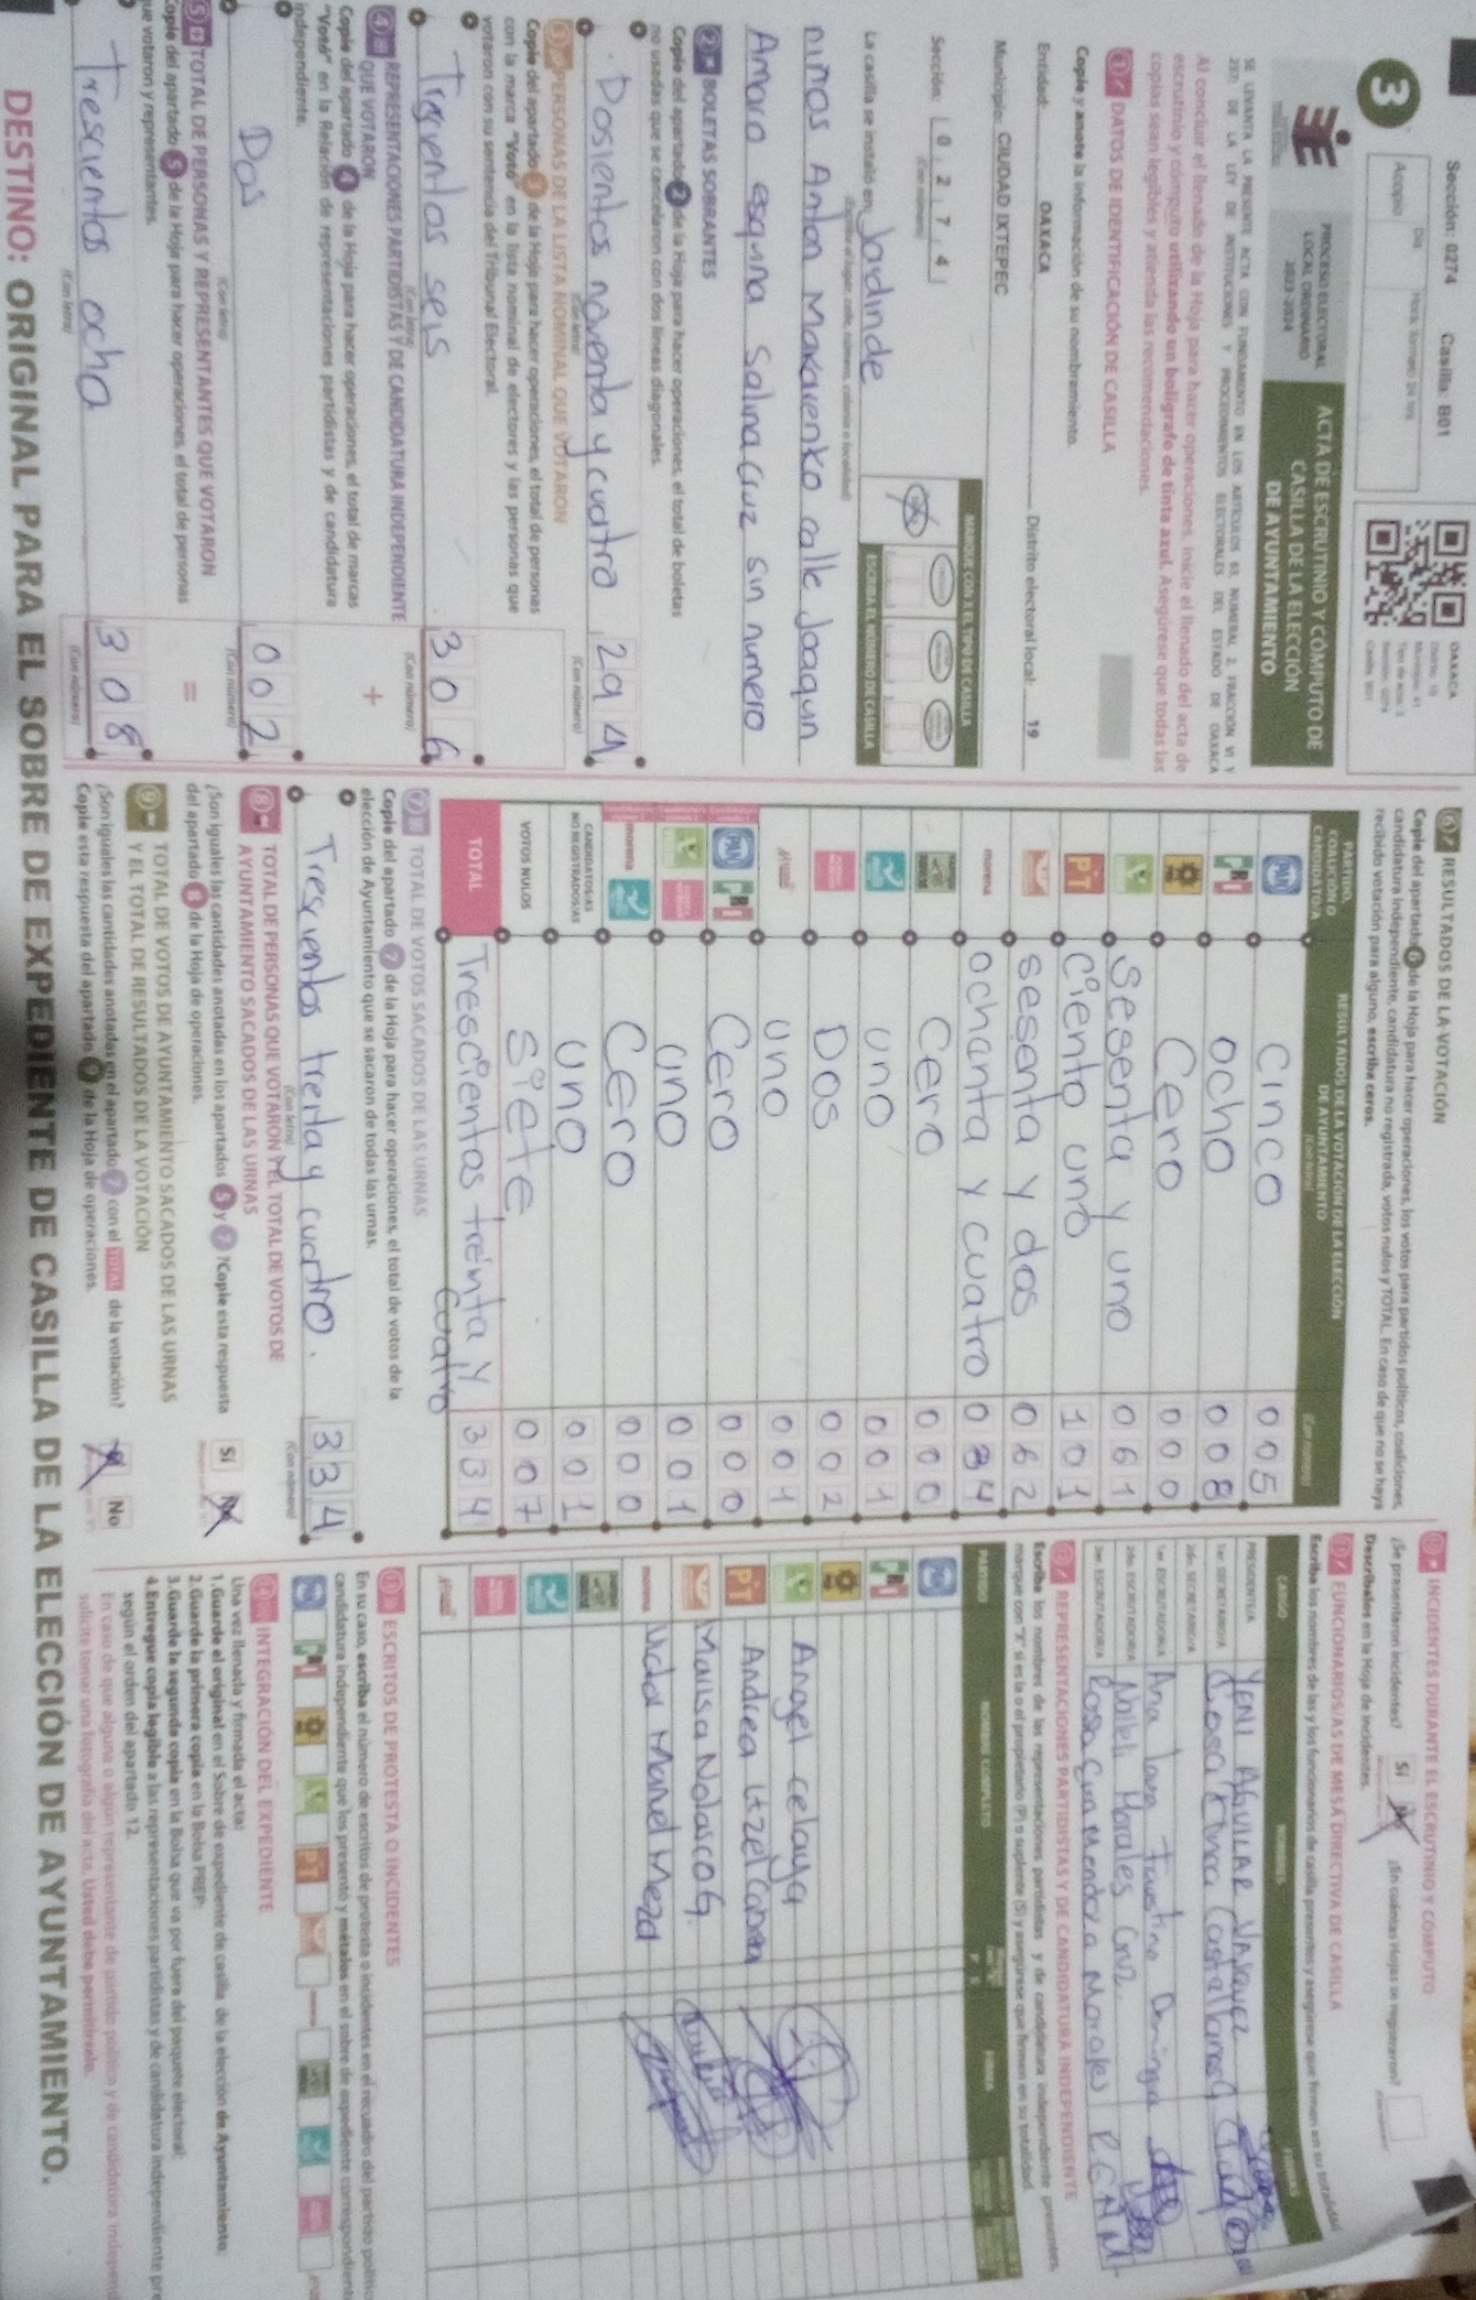 Sección: 0274 Casilla: B01
3
Acopio
Día
OAXACA
PROCESO ELECTORAL
LOCAL ORDINARIO
2023-2024
ACTA DE ESCRUTINIO Y CÓMPUTO DE
CASILLA DE LA ELECCIÓN
DE AYUNTAMIENTO
Al concluir el llenado de la Hoja para hacer operaciones, inicie el llenado del acta de
escrutinio y cómputo utilizando un bolígrafo de tinta azul. Asegúrese que todas las
copias sean legibles y atienda las recomendaciones.
1 DATOS DE IDENTIFICACIÓN DE CASILLA
Copie y anote la información de su nombramiento.
Entidad: OAXACA Distrito electoral local: 19
Municipio: CIUDAD IXTEPEC
Sección: 0 2 7 4
(Con número)
MARQUE CON X EL TIPO DE CASILLA
ESCRIBA EL NÚMERO DE CASILLA
La casilla se instaló en: Jardinde
niños Anton Makarenko calle Joaquin
Amaro esquina Salina Cruz sin numero
2 BOLETAS SOBRANTES
Copie del apartado 2 de la Hoja para hacer operaciones, el total de boletas
no usadas que se cancelaron con dos líneas diagonales.
Dosientos noventa y cuatro 294
(Con letra) (Con número)
3 PERSONAS DE LA LISTA NOMINAL QUE VOTARON
Copie del apartado 3 de la Hoja para hacer operaciones, el total de personas
con la marca "Votó" en la lista nominal de electores y las personas que
votaron con su sentencia del Tribunal Electoral.
Trescientos seis 306
(Con letra) (Con número)
4 REPRESENTACIONES PARTIDISTAS Y DE CANDIDATURA INDEPENDIENTE
QUE VOTARON
+
Copie del apartado 4 de la Hoja para hacer operaciones, el total de marcas
"Votó" en la Relación de representaciones partidistas y de candidatura
independiente.
Dos 002
(Con letra) (Con número)
5 TOTAL DE PERSONAS Y REPRESENTANTES QUE VOTARON
=
Copie del apartado 5 de la Hoja para hacer operaciones, el total de personas
que votaron y representantes.
Trescientos ocho 308
(Con letra) (Con número)
6 RESULTADOS DE LA VOTACIÓN
Copie del apartado 6 de la Hoja para hacer operaciones, los votos para partidos políticos, coaliciones,
candidatura independiente, candidatura no registrada, votos nulos y TOTAL. En caso de que no se haya
recibido votación para alguno, escriba ceros.
PARTIDO,
COALICIÓN O
CANDIDATO/A
RESULTADOS DE LA VOTACIÓN DE LA ELECCIÓN
DE AYUNTAMIENTO
(Con letra)
(Con número)
PAN Cinco 005
PRI ocho 008
Cero 000
Sesenta y uno 061
PT Ciento uno 101
sesenta y dos 062
morena ochenta y cuatro 084
Cero 000
uno 001
Dos 002
uno 001
PAN PRI Cero 000
uno 001
morena Cero 000
CANDIDATOS/AS
NO REGISTRADOS/AS uno 001
VOTOS NULOS Siete 007
TOTAL Trescientos treinta y cuatro 334
7 TOTAL DE VOTOS SACADOS DE LAS URNAS
Copie del apartado 7 de la Hoja para hacer operaciones, el total de votos de la
elección de Ayuntamiento que se sacaron de todas las urnas.
Trescientos treita y cuatro. 334
(Con letra) (Con número)
8 TOTAL DE PERSONAS QUE VOTARON Y EL TOTAL DE VOTOS DE
AYUNTAMIENTO SACADOS DE LAS URNAS
¿Son iguales las cantidades anotadas en los apartados 5 y 7? Copie esta respuesta
del apartado 8 de la Hoja de operaciones.
Sí
9 TOTAL DE VOTOS DE AYUNTAMIENTO SACADOS DE LAS URNAS
Y EL TOTAL DE RESULTADOS DE LA VOTACIÓN
¿Son iguales las cantidades anotadas en el apartado 7 con el TOTAL de la votación?
Copie esta respuesta del apartado 9 de la Hoja de operaciones.
No
INCIDENTES DURANTE EL ESCRUTINIO Y CÓMPUTO
¿Se presentaron incidentes? Sí
Descríbalos en la Hoja de Incidentes.
FUNCIONARIOS/AS DE MESA DIRECTIVA DE CASILLA
CARGO
YENI AGUILAR VASQUEZ
Ana Laura Faustino Dominguez
Nalleli Morales Cruz
Rosa Gum Mendoza Morales R.G.M.M
REPRESENTACIONES PARTIDISTAS Y DE CANDIDATURA INDEPENDIENTE
PARTIDO NOMBRE COMPLETO
Angel celaya
PT Andrea Itzel
Marisa Nolasco G.
Victor Manuel Meza
ESCRITOS DE PROTESTA O INCIDENTES
En su caso, escriba el número de escritos de protesta o incidentes en el recuadro del partido político
candidatura independiente que los presentó y métalos en el sobre de expediente correspondiente
INTEGRACIÓN DEL EXPEDIENTE
Una vez llenada y firmada el acta:
1. Guarde el original en el Sobre de expediente de casilla de la elección de Ayuntamiento.
2. Guarde la primera copia en la Bolsa PREP.
3. Guarde la segunda copia en la Bolsa que va por fuera del paquete electoral.
4. Entregue copia legible a las representaciones partidistas y de candidatura independiente
según el orden del apartado 12.
En caso de que alguna o algún representante de partido político y de candidatura
solicite tomar una fotografía del acta, Usted debe permitírselo.
DESTINO: ORIGINAL PARA EL SOBRE DE EXPEDIENTE DE CASILLA DE LA ELECCIÓN DE AYUNTAMIENTO.